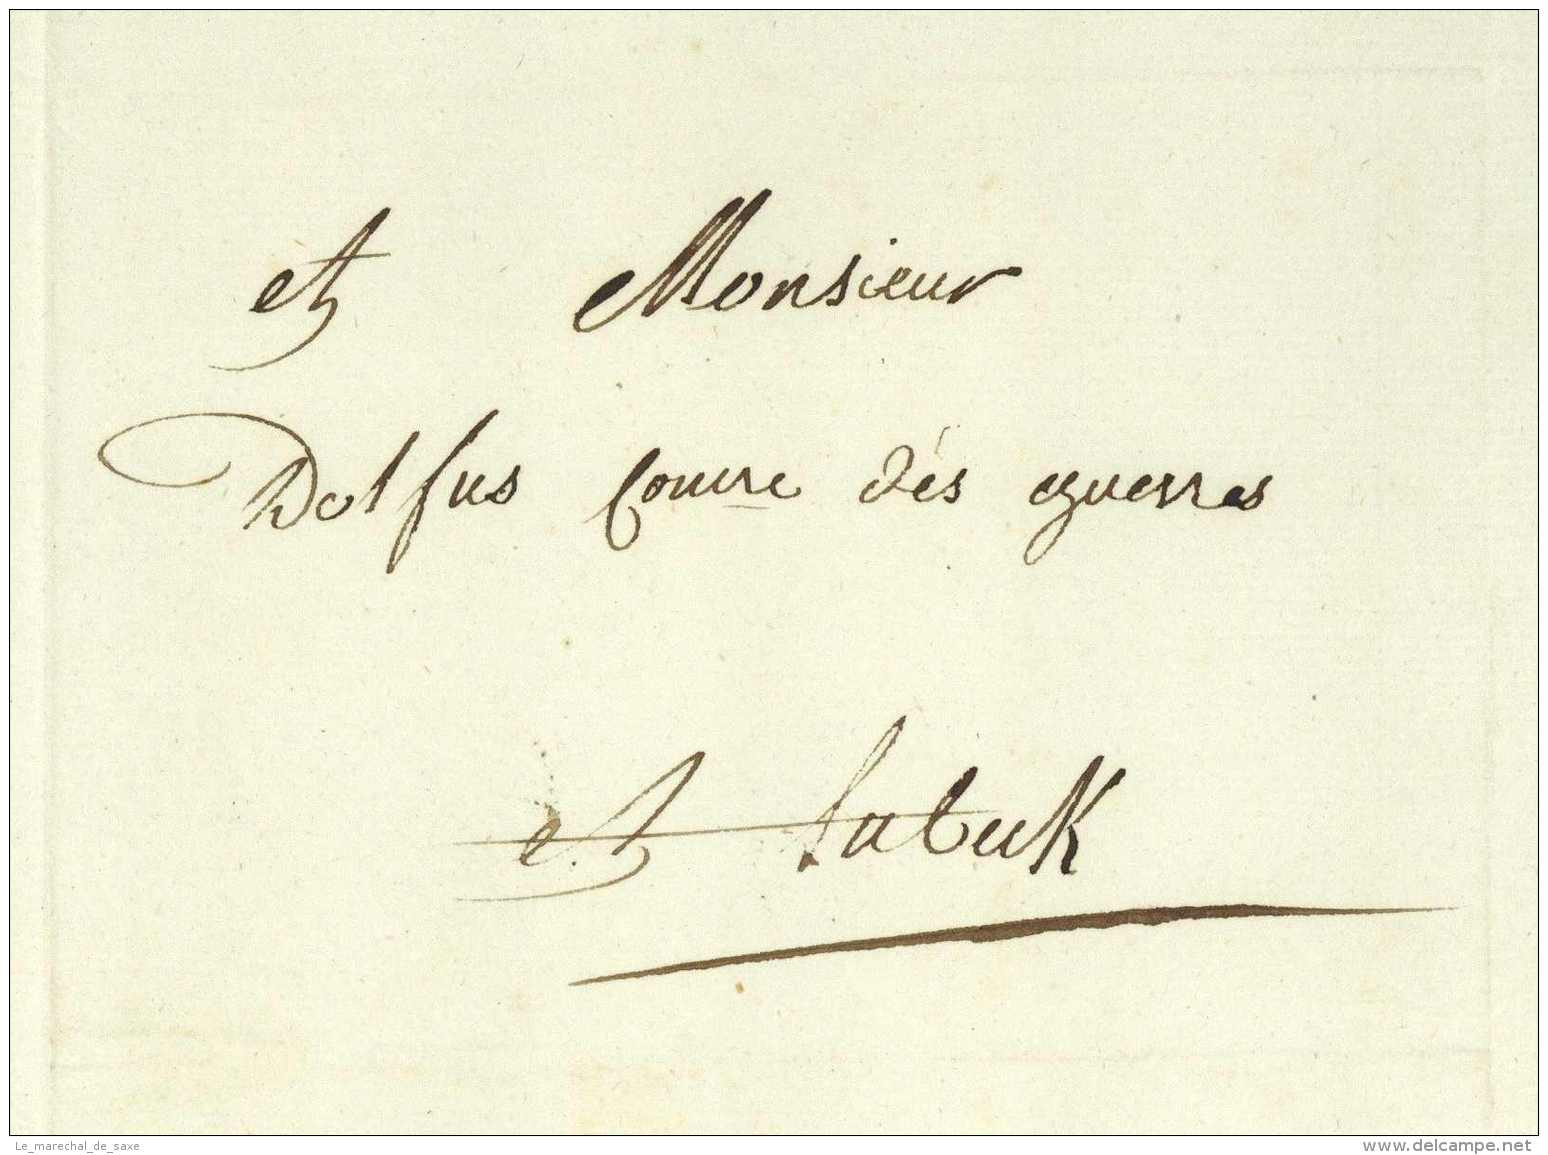 et Monsieur
Dolfus Comre dés guerres
et Lubeck
Le_marechal_de_saxe
www.delcampe.net